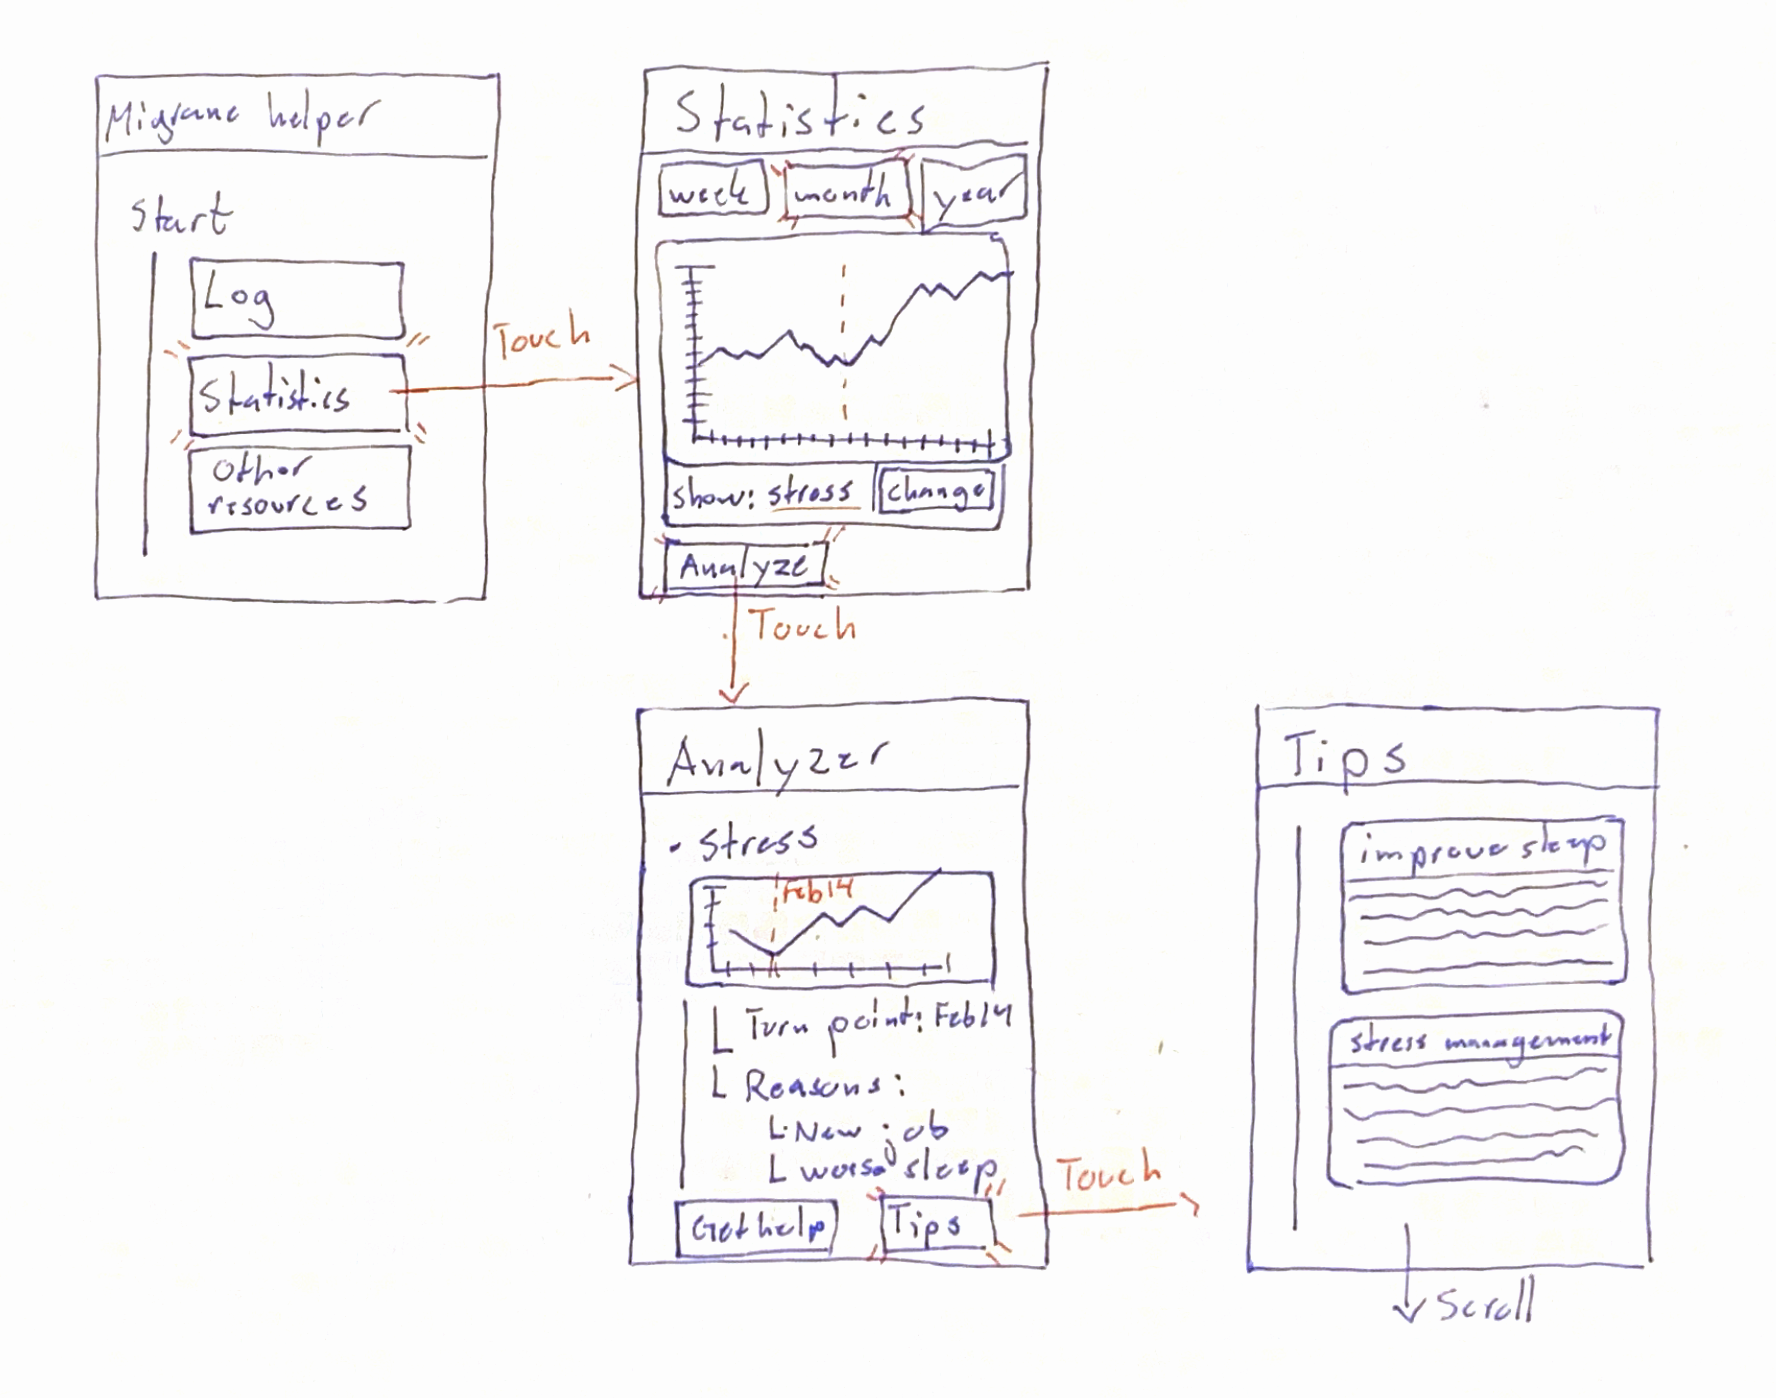 Migrane helper
Start
Log
Statistics
Other
resources
Touch
Statistics
week month year
show: stress change
Analyze
Touch
Analyzer
• Stress
Feb14
Turn point: Feb14
Reasons:
New job
worse sleep
Get help Tips
Touch
Tips
improve sleep
stress management
Scroll